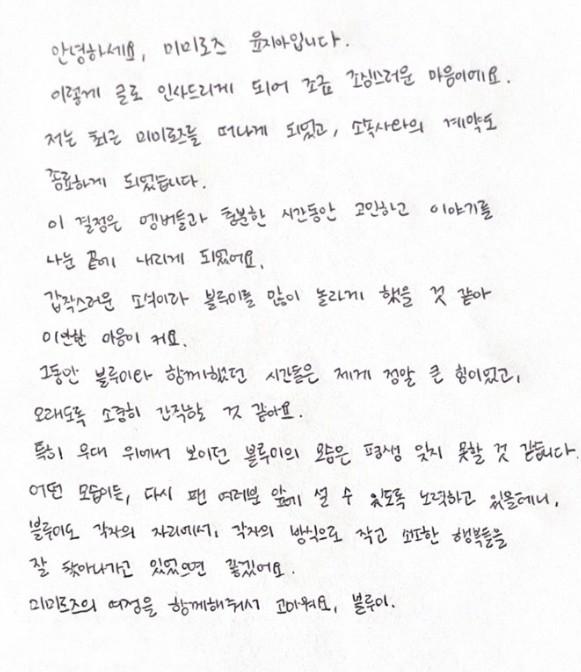 안녕하세요, 미미로즈 윤지아입니다.
이렇게 글로 인사드리게 되어 조금 조심스러운 마음이에요.
저는 최근 미미로즈를 떠나게 되었고, 소속사와의 계약도
종료하게 되었습니다.
이 결정은 멤버들과 충분한 시간동안 고민하고 이야기를
나눈 끝에 내리게 되었어요.
갑작스러운 소식이라 블루이를 많이 놀라게 했을 것 같아
미안한 마음이 커요.
그동안 블루이와 함께했던 시간들은 제게 정말 큰 힘이었고,
오래도록 소중히 간직할 것 같아요.
특히 무대 위에서 보이던 블루이의 모습은 평생 잊지 못할 것 같습니다.
어떤 모습이든, 다시 팬 여러분 앞에 설 수 있도록 노력하고 있을테니,
블루이도 각자의 자리에서, 각자의 방식으로 작고 소포한 행복들을
잘 찾아나가고 있었으면 좋겠어요.
미미로즈의 여정을 함께해줘서 고마워요, 블루이.